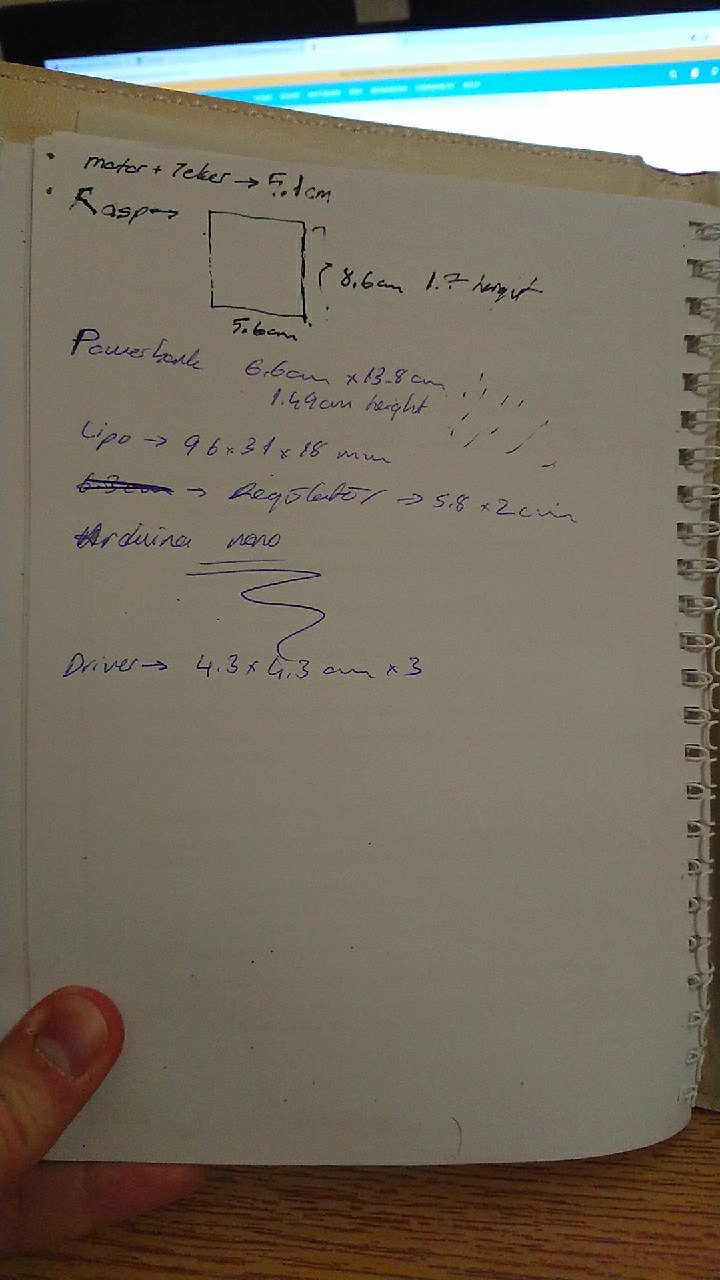 • motor + Teker → 5.1cm
• Rasp →
8.6cm 1.7 height
5.6cm
Powerbank 6.6cm x 13.8 cm
1.49cm height
Lipo → 96 x 31 x 18 mm
→ Regülatör → 5.8 x 2 cm
Arduino nano
Driver → 4.3 x 4.3 cm x 3